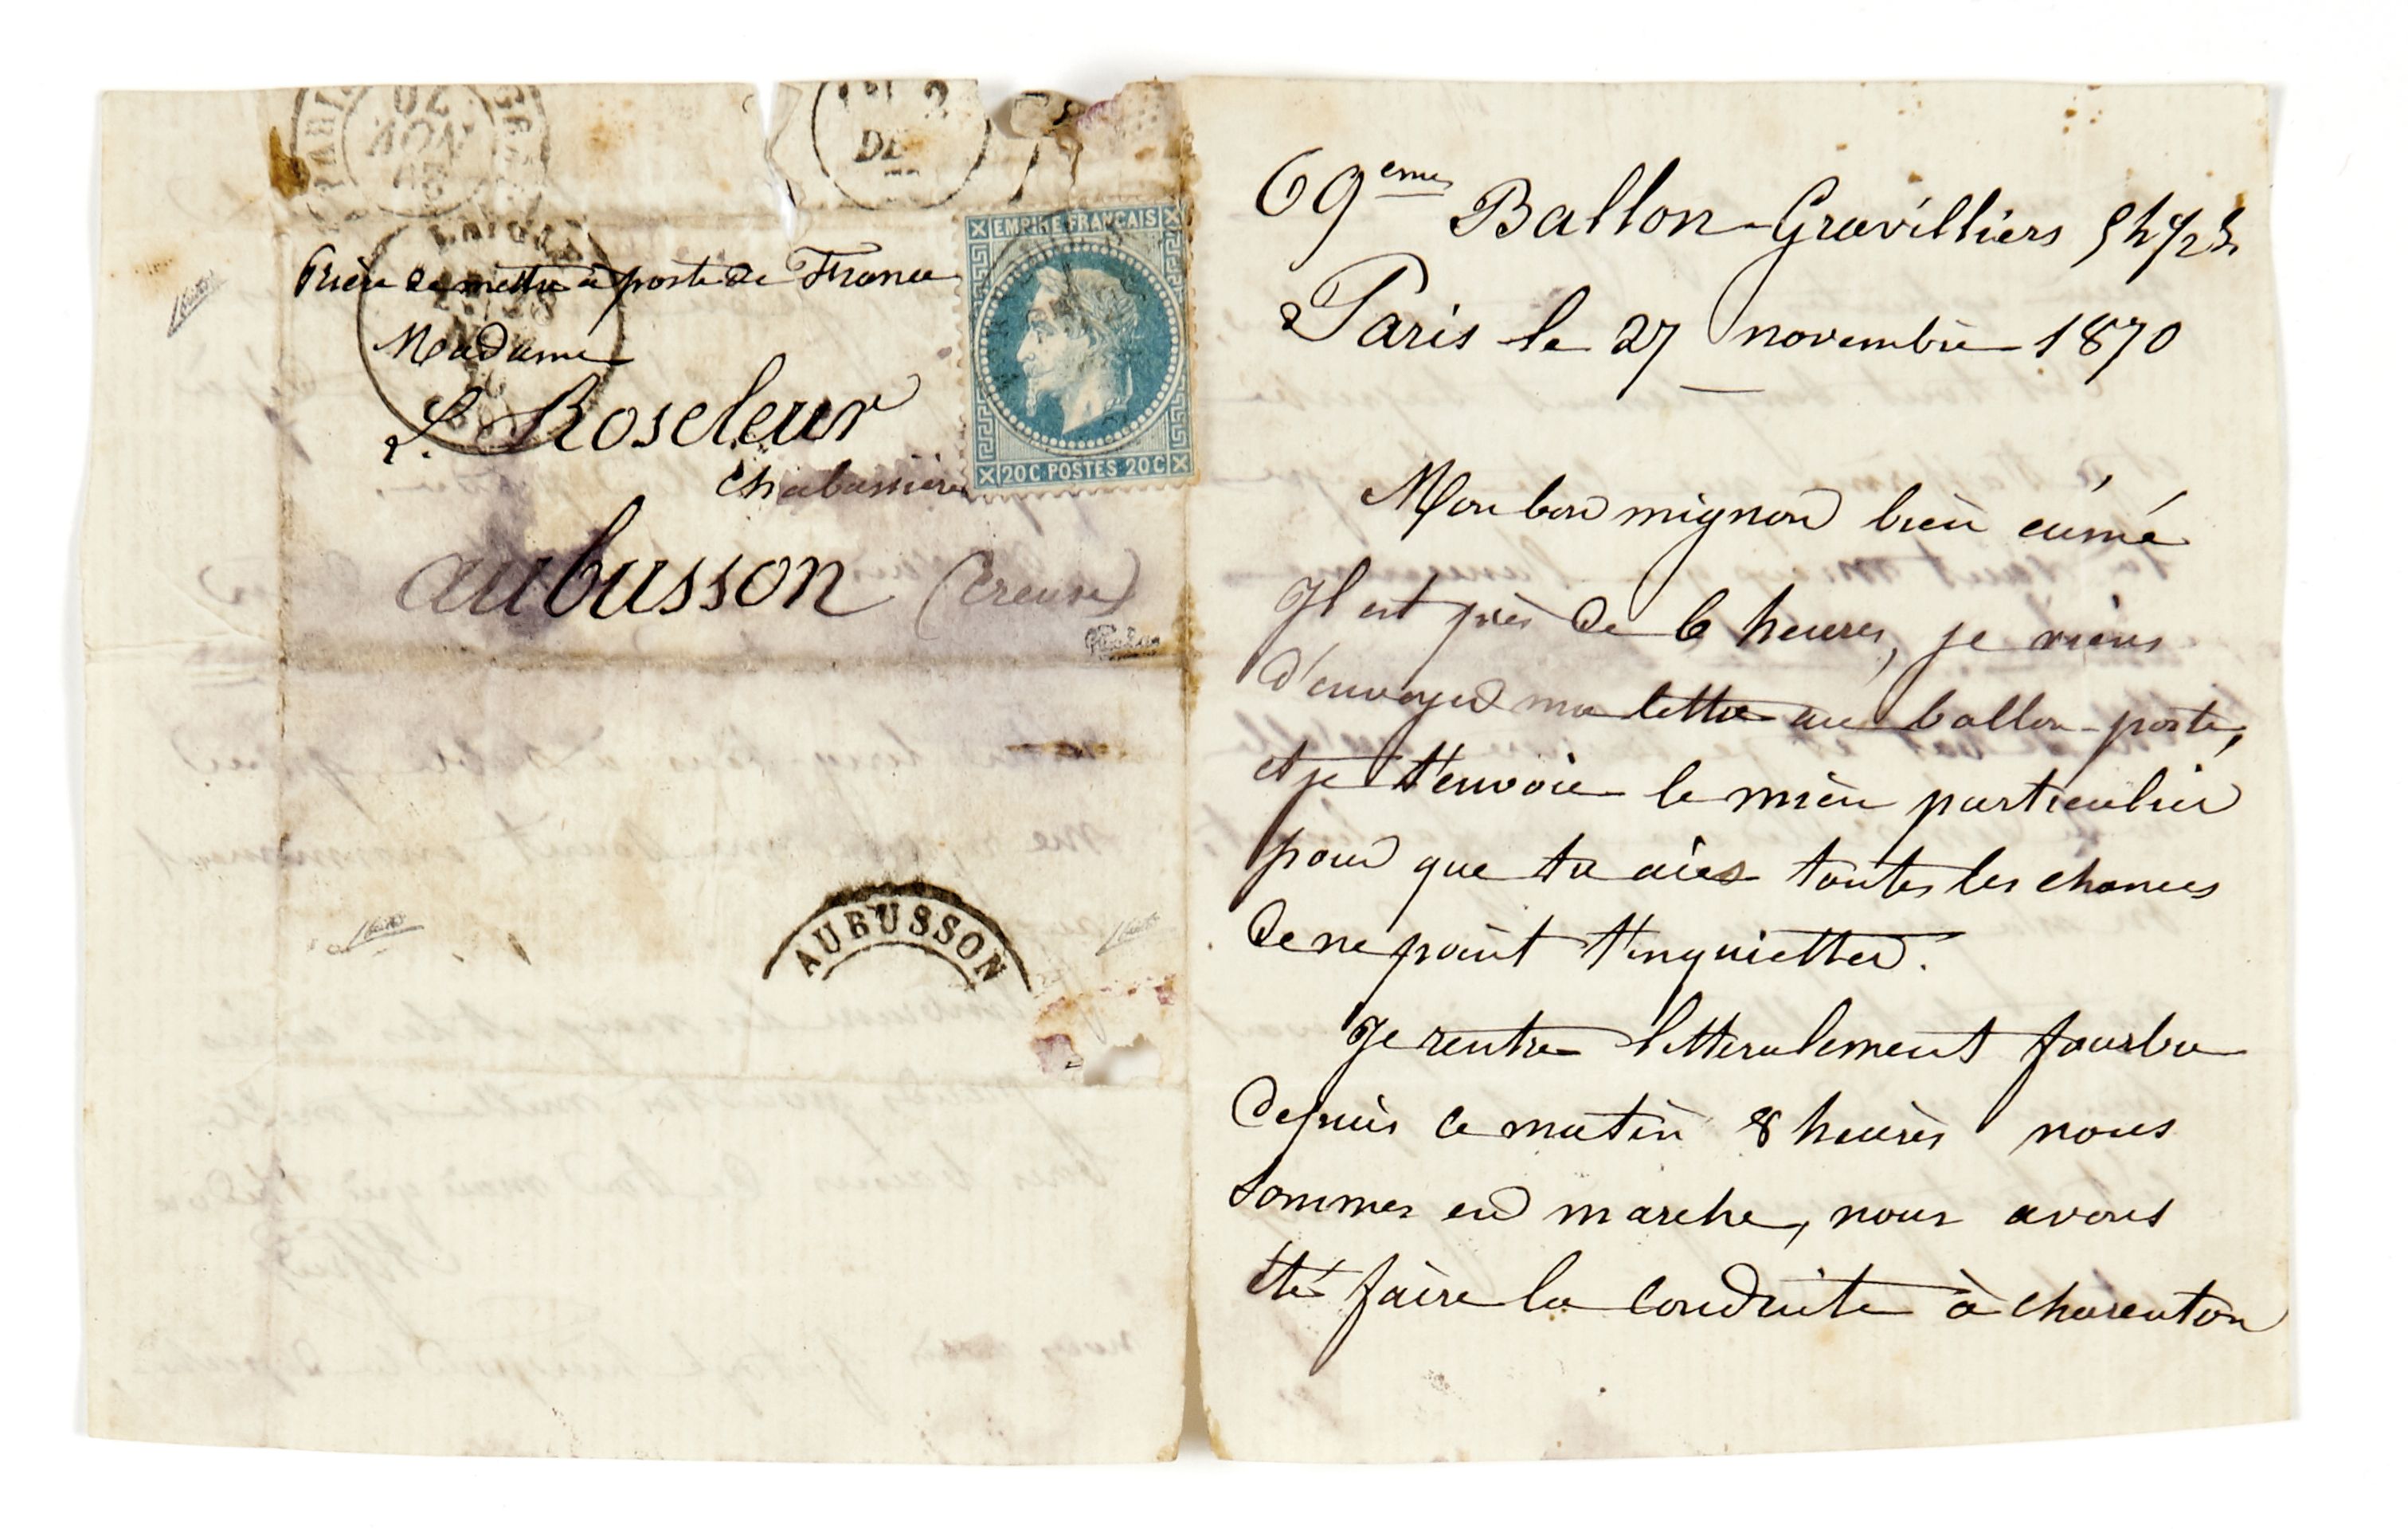 PARIS
NOV
DE
EMPIRE FRANÇAIS
20 C POSTES 20 C
Prière de mettre à poste de France
Madame
L. Roseleur
Chabassière
aubusson (Creuse)
AUBUSSON
69eme Ballon-Gravilliers 5h 1/2 S.
Paris le 27 novembre 1870
Mon bon mignon bien aimé
Il est près de 6 heures, je viens
d'envoyer ma lettre au ballon-poste,
et je t'envoie le mien particulier
pour que tu aies toutes les chances
de ne point t'inquietter.
Je rentre litteralement fourbu
depuis ce matin 8 heures nous
sommes en marche, nous avons
été faire la conduite à charenton